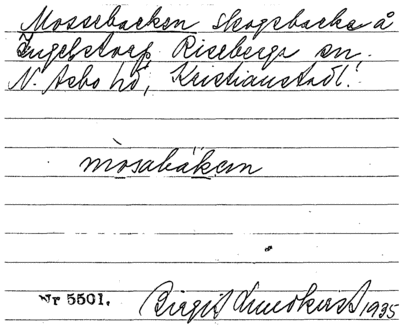 Mossabacken skogsbacke å
Ingelstorp Riseberga sn,
N. Asbo hd, Kristianstadl.
mòsabákan
Nr 5501. Birgit Lundkvist 1935